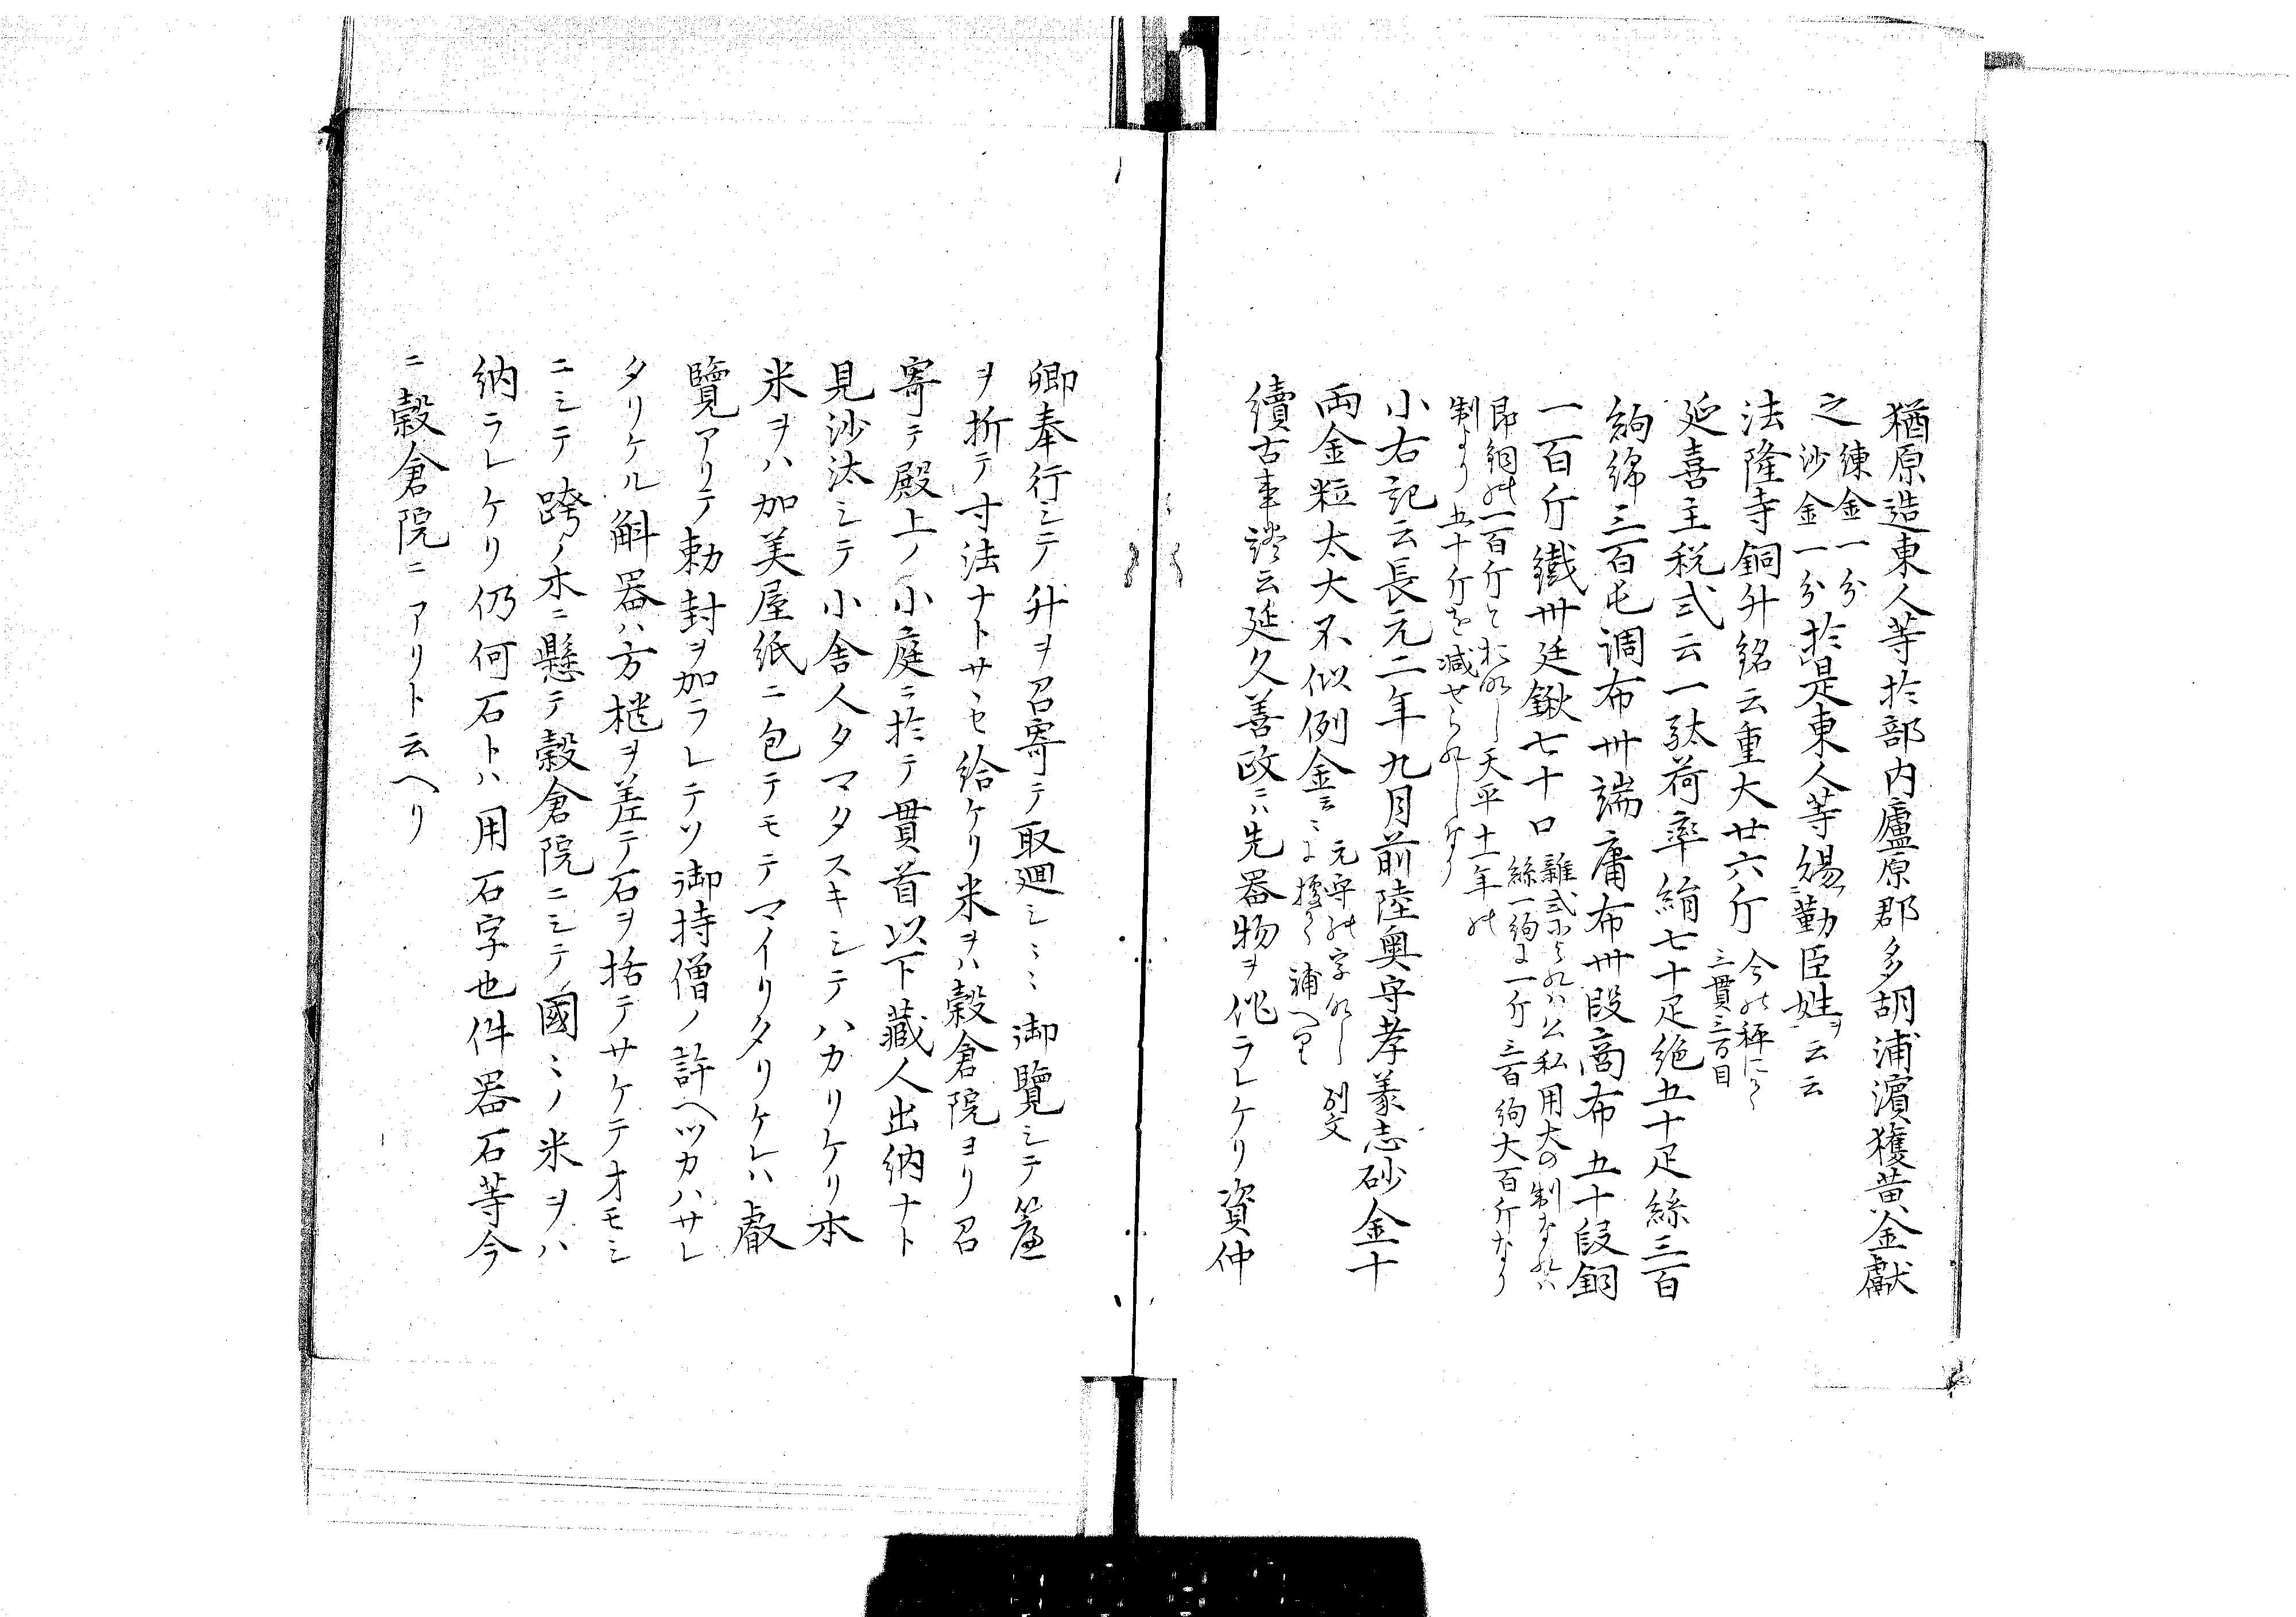 猶原造東人等於部内廬原郡多胡浦濵獲黄金獻
之練金一分
沙金一分於是東人等賜勤臣姓ヲ云云
法隆寺銅升銘云重大廿六斤今の秤にて
三貫三百目
延喜主税式云一䭾荷率絹七十疋絁五十疋絲三百
絇綿三百屯調布卅端庸布卅段商布五十段銅
一百斤鐵卅廷鍬七十口雜式によれハ公私用大の制なれハ
絲一絇は一斤三百絇大百斤なり
即銅の一百斤と おなし天平十一年の
制より五十斤を減せられしなり
小右記云長元二年九月前陸奥守孝義志砂金十
両金粒太大不似例金云〻元守の字なし 列文
に據て 浦へ
續古事談云延久善政ニハ先器物ヲ作ラレケリ資仲
卿奉行シテ升ヲ召寄テ取廻シミミ御覽シテ簾
ヲ折テ寸法ナトサヽセ給ケリ米ヲハ穀倉院ヨリ召
寄テ殿上ノ小庭ニ於テ貫首以下藏人出納ナト
見沙汰シテ小舎人タマタスキシテハカリケリ本
米ヲハ加美屋紙ニ包テモテマイリタリケレハ叡
覽アリテ勅封ヲ加ラレテソ御持僧ノ許ヘツカハサレ
タリケル斛器ハ方樣ヲ差テ石ヲ括テサケテオモシ
ニシテ跨ノ木ニ懸テ穀倉院ニシテ國ミノ米ヲハ
納ラレケリ仍何石トハ用石字也件器石等今
ニ穀倉院ニアリト云ヘリ